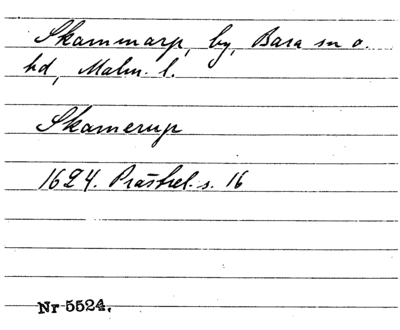 Skammarp, by, Bara sn o.
hd, Malm. l.
Skamerup
1624. Prästrel. s. 16
Nr 5524.